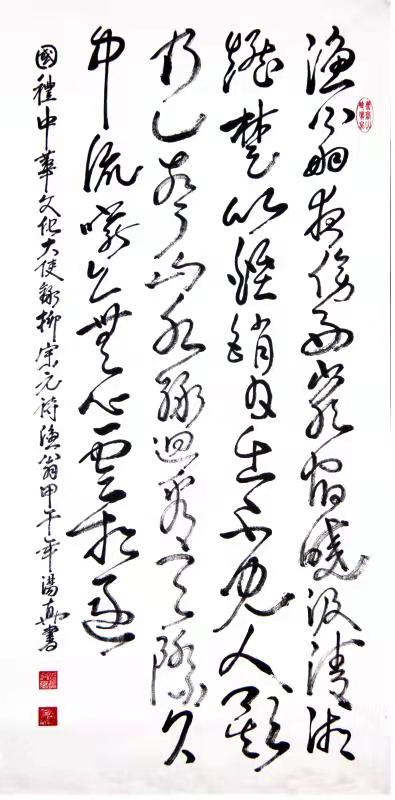 漁翁夜傍西巖宿曉汲清湘
燃楚竹煙銷日出不見人欸
乃一聲山水綠迴看天際下
中流巖上無心雲相逐
國禮中華文化大使錄柳宗元詩漁翁甲午年湯真書